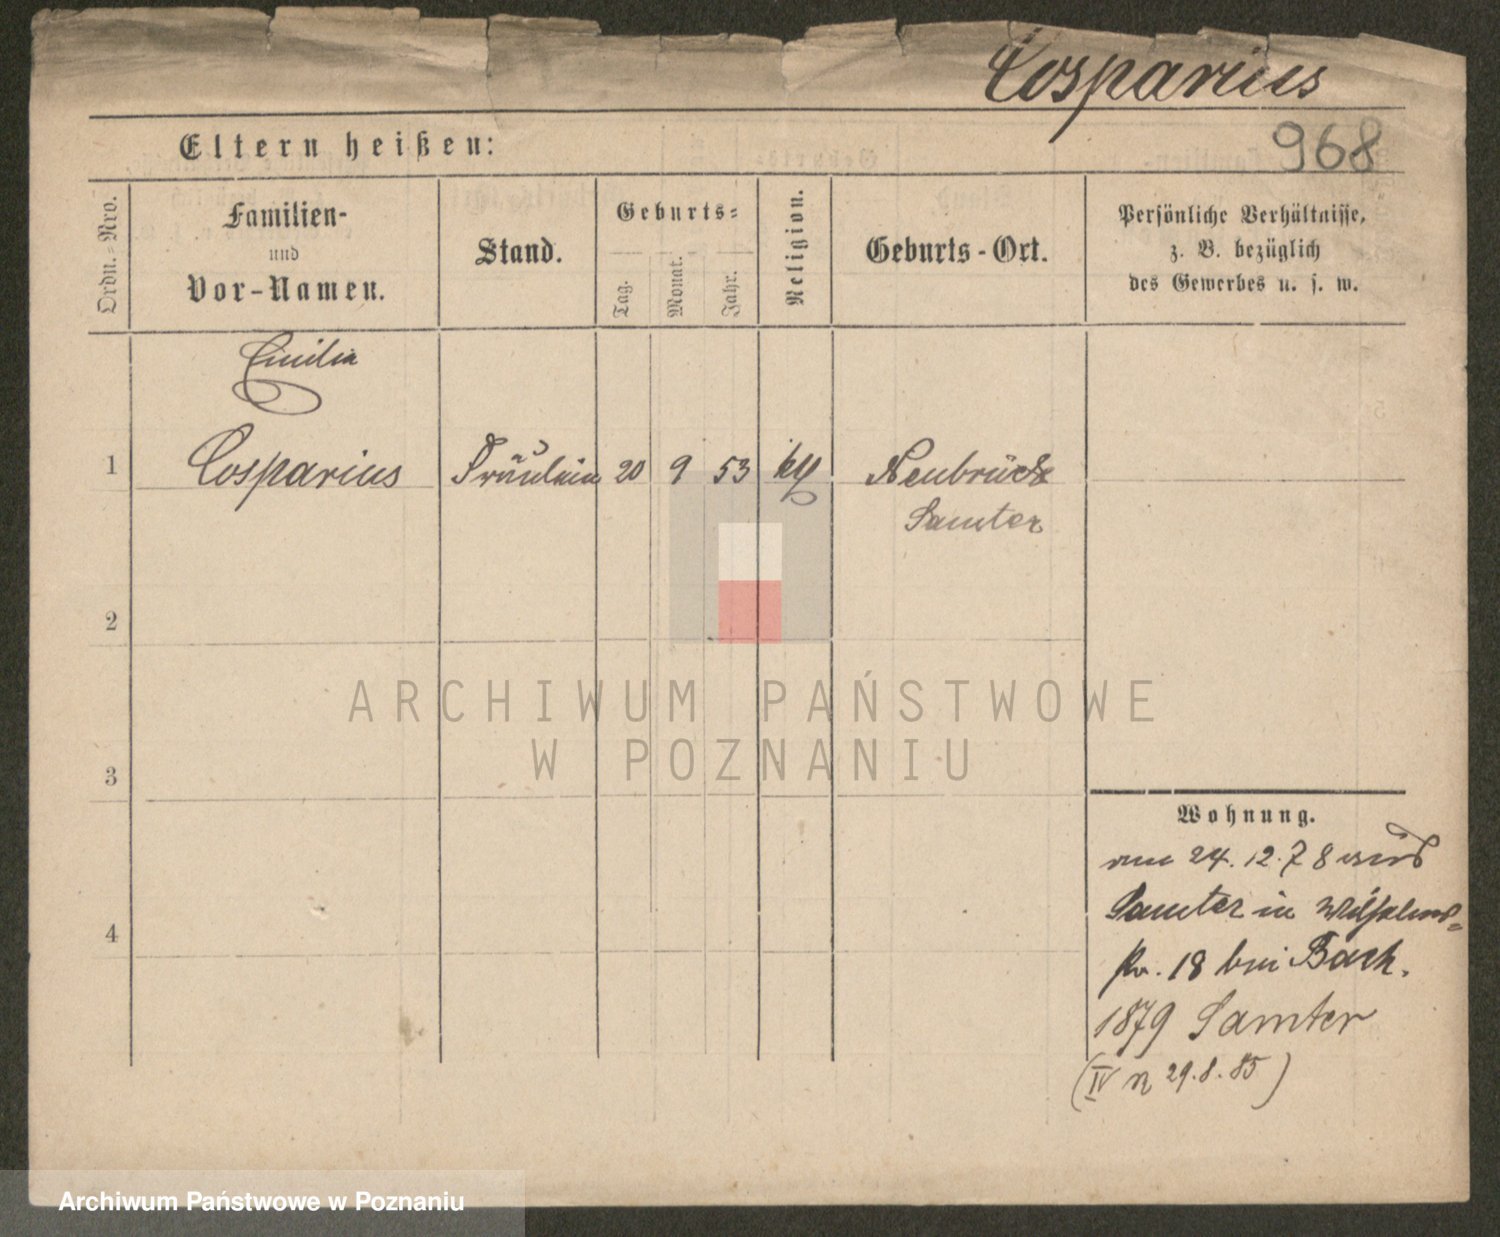 Cosparius
968
Eltern heißen:
Ordn.=Nro.
Familien-
und
Vor-Namen.
Stand.
Geburts=
Tag.
Monat.
Jahr.
Religion.
Geburts-Ort.
Persönliche Verhältnisse,
z. B. bezüglich
des Gewerbes u. s. w.
Emilie
1 Cosparius Fräulein 20 9 53 Neubrück
Samter
2
3
4
ARCHIWUM PAŃSTWOWE
W POZNANIU
Wohnung.
am 24.12.78 aus
Samter in Wilhelms=
str. 18 bei Bach.
1879 Samter
(IV n 29.8.85)
Archiwum Państwowe w Poznaniu